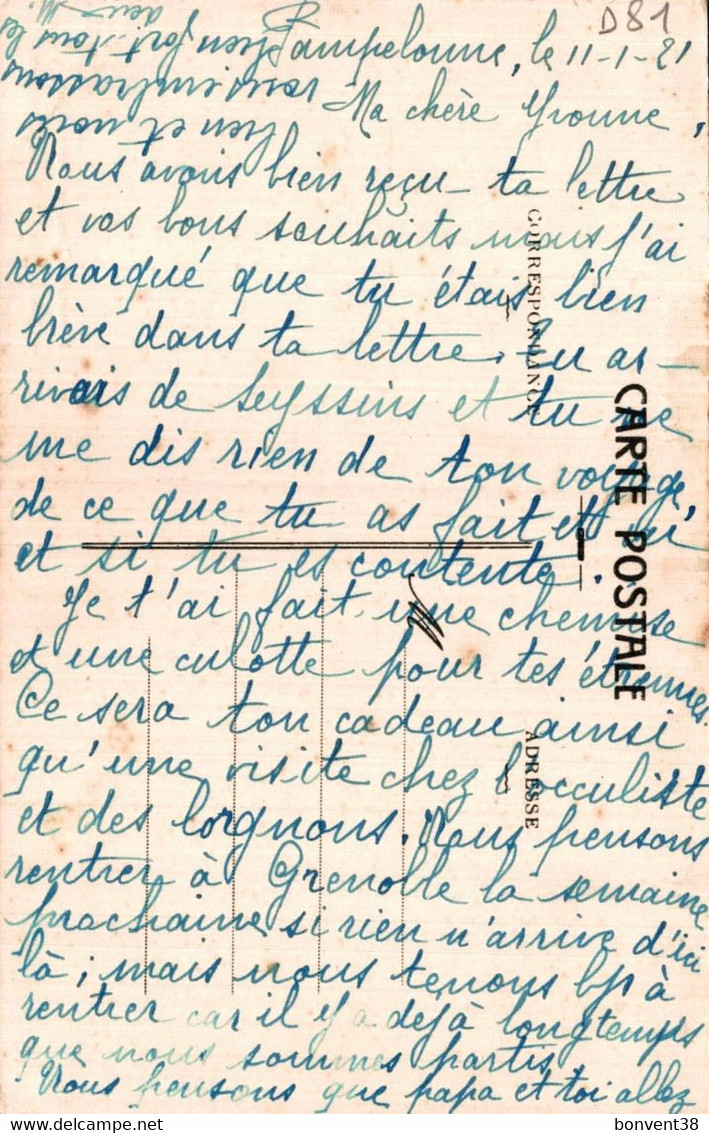 D81
Pampelonne, le 11-1-21
Ma chère Yvonne,
Nous avons bien reçu ta lettre
et vos bons souhaits mais j'ai
remarqué que tu étais bien
brève dans ta lettre. Tu ar-
rivais de Seyssins et tu ne
me dis rien de ton voyage,
de ce que tu as fait et vu
et si tu es contente.
Je t'ai fait une chemise
et une culotte pour tes étrennes.
Ce sera ton cadeau ainsi
qu'une visite chez l'occuliste
et des lorgnons. Nous pensons
rentrer à Grenoble la semaine
prochaine si rien n'arrive d'ici
là ; mais nous tenons bp à
rentrer car il y a déjà longtemps
que nous sommes partis.
Nous pensons que papa et toi allez
bien et nous
vous embrassons
bien fort tous les
deux. M.
CORRESPONDANCE
CARTE POSTALE
ADRESSE
bonvent38